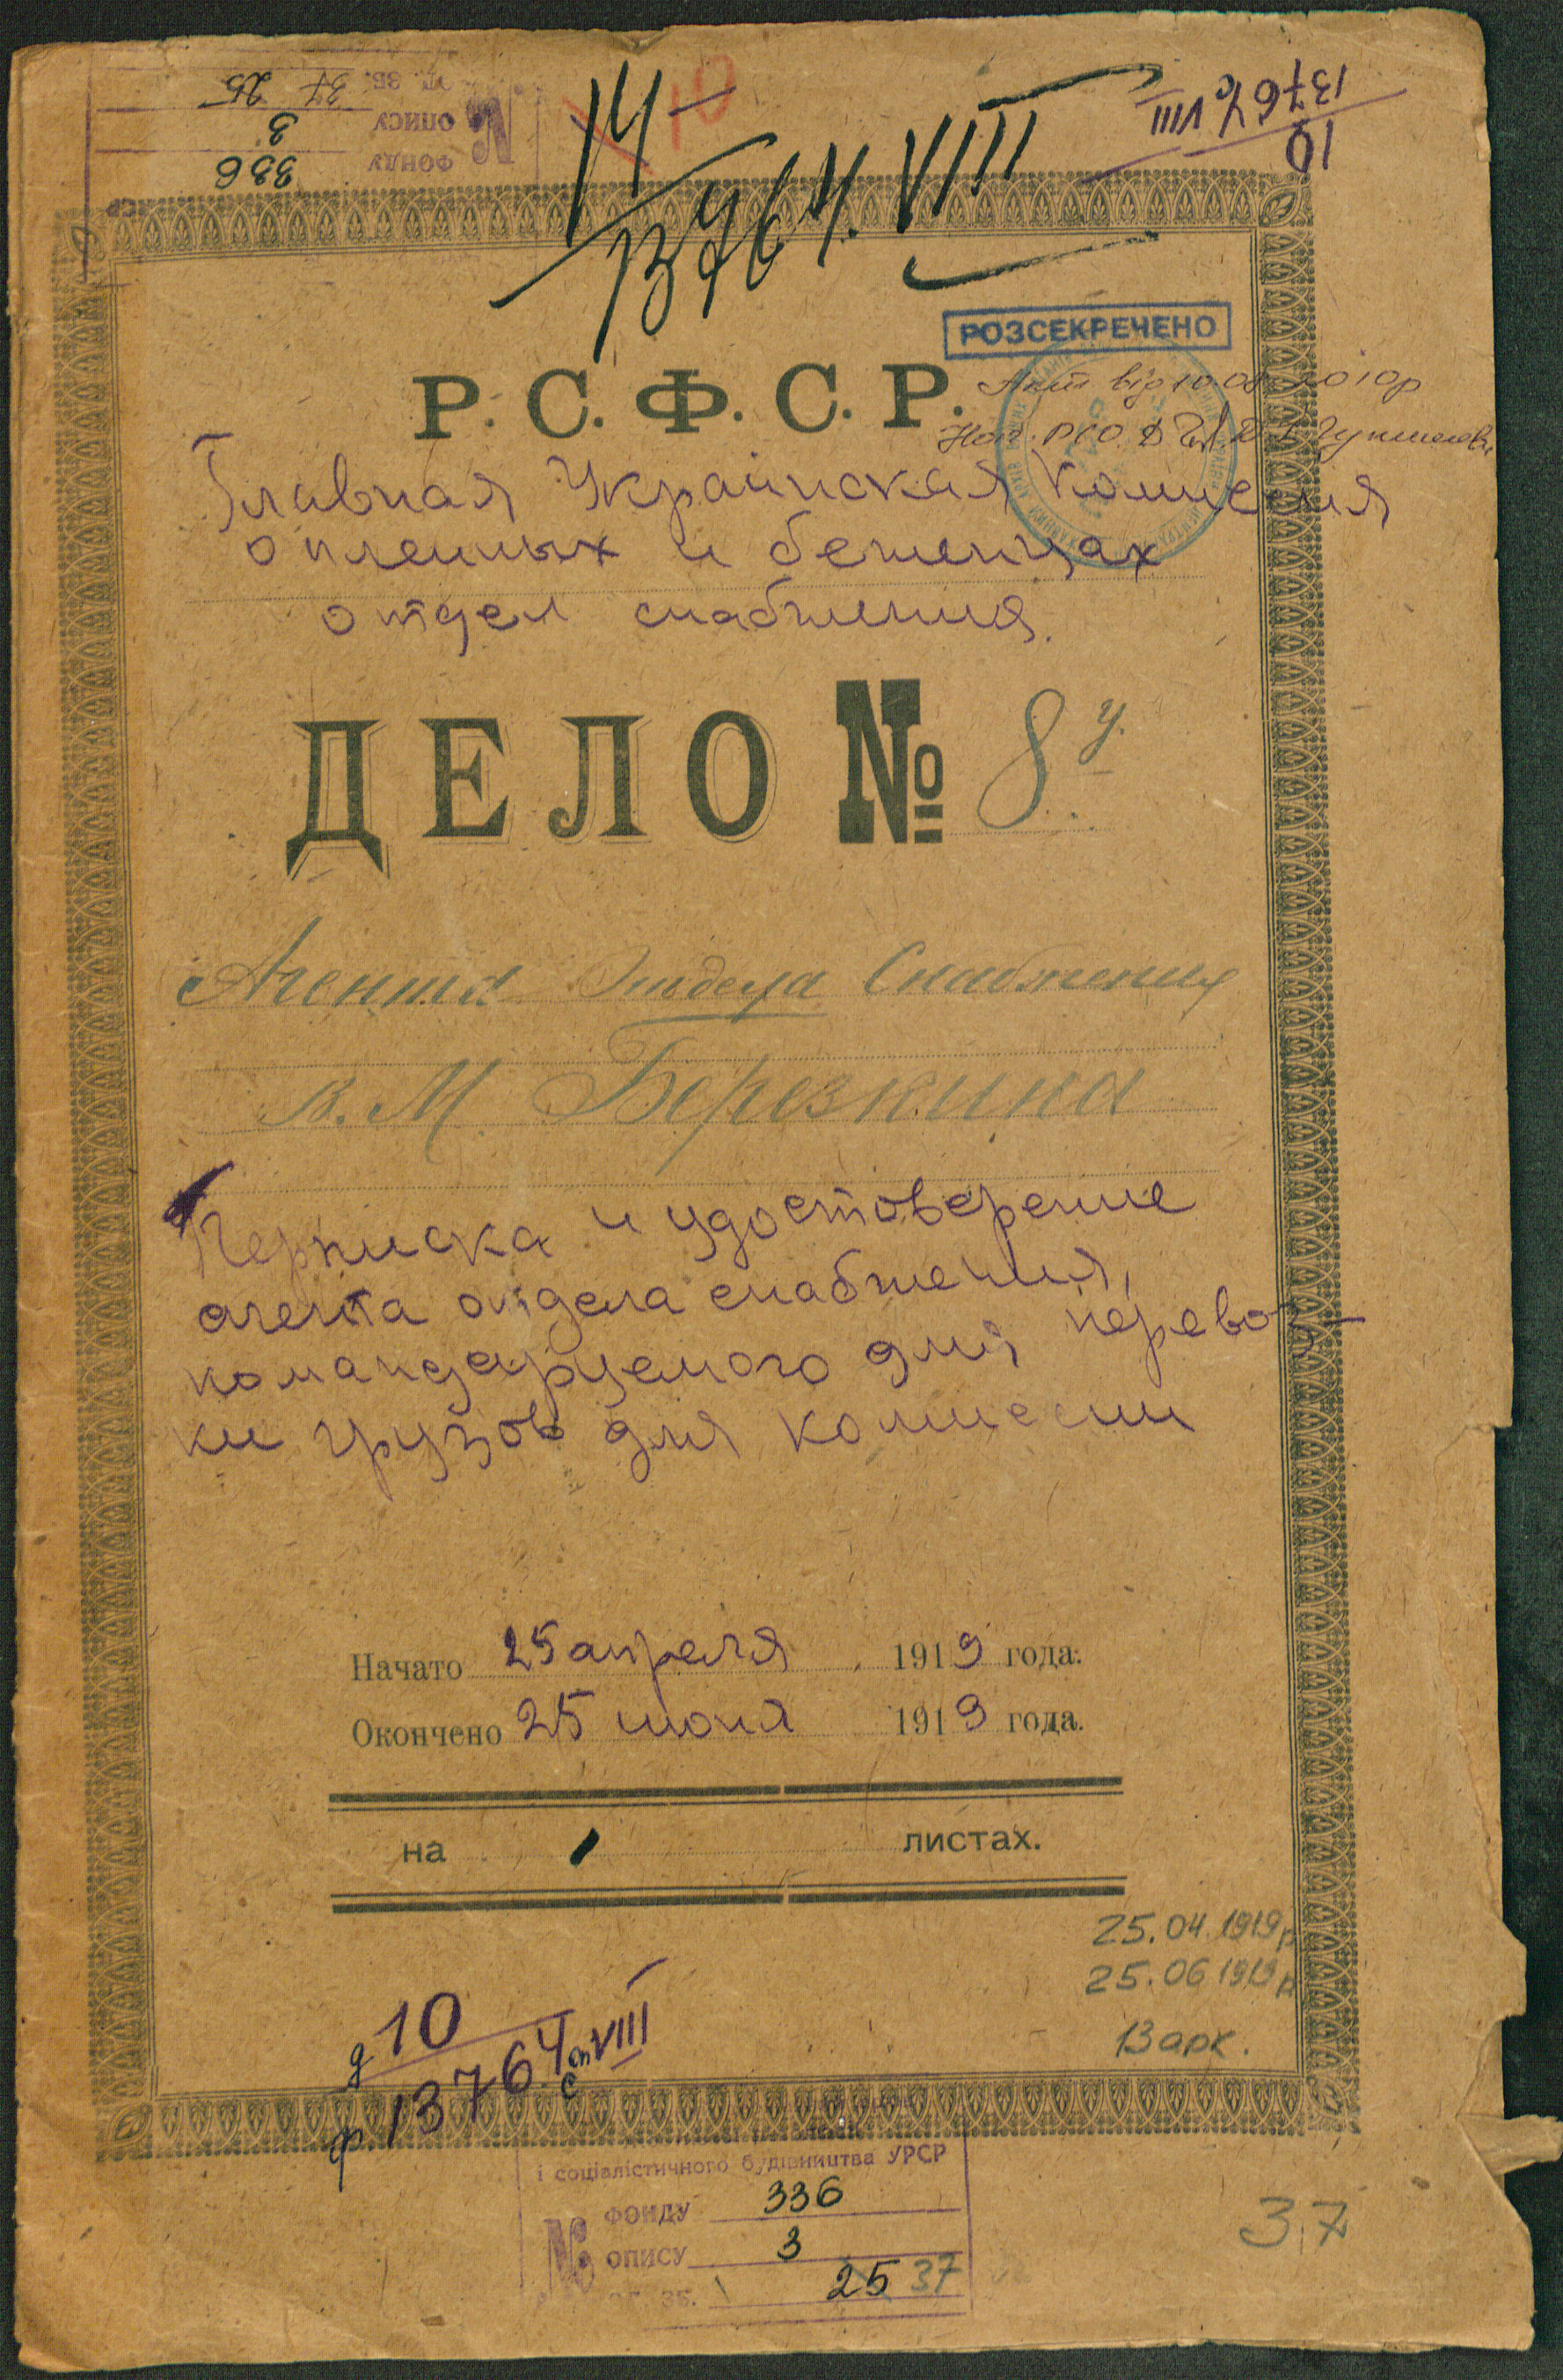 № фонду 336
опису 3
од. зб. 37 25
10
14
13764. VIII
10
13764с VIII
РОЗСЕКРЕЧЕНО
Р. С. Ф. С. Р.
Акт від 10.08.2010р
Главная Украинская Комиссия
о пленных и беженцах
отдел снабжения.
ДЕЛО № 8 у.
Агента Отдела Снабжения
В. М. Березкина
Перписка и удостоверение
агента отдела снабжения,
командируемого для перевоз-
ки грузов для комиссии
Начато 25 апреля 1919 года.
Окончено 25 июня 1919 года.
на листах.
25.04.1919р
25.06 1919р
13 арк.
д 10
ф 13764 оп VIII
і соціалістичного будівництва УРСР
№ фонду 336
опису 3
од. зб. 25 37
37